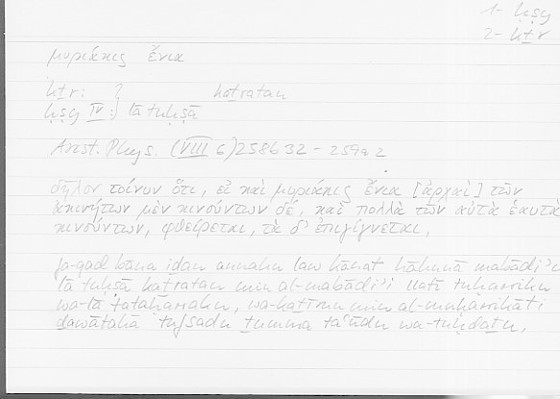 1- ḥṣy
2- kṯr
μυριάκις ἔνια
kṯr: ? kaṯratan
ḥṣy IV:) lā tuḥṣā
Arist. Phys. (VIII 6) 258b32 - 259a2
δῆλον τοίνυν ὅτι, εἰ καὶ μυριάκις ἔνια [ἀρχαὶ] τῶν
ἀκινήτων μὲν κινούντων δέ, καὶ πολλὰ τῶν αὐτὰ ἑαυτὰ
κινούντων, φθείρεται, τὰ δ' ἐπιγίγνεται,
fa-qad bāna iḏan annahu law kānat hāhunā mabādiʾu
lā tuḥṣā kaṯratan min al-mabādiʾi llatī tuḥarriku
wa-lā tataḥarraku, wa-kaṯīrun min al-muḥarrikāti
ḏawātahā tufsadu ṯumma taʿūdu wa-tuḥdaṯu,